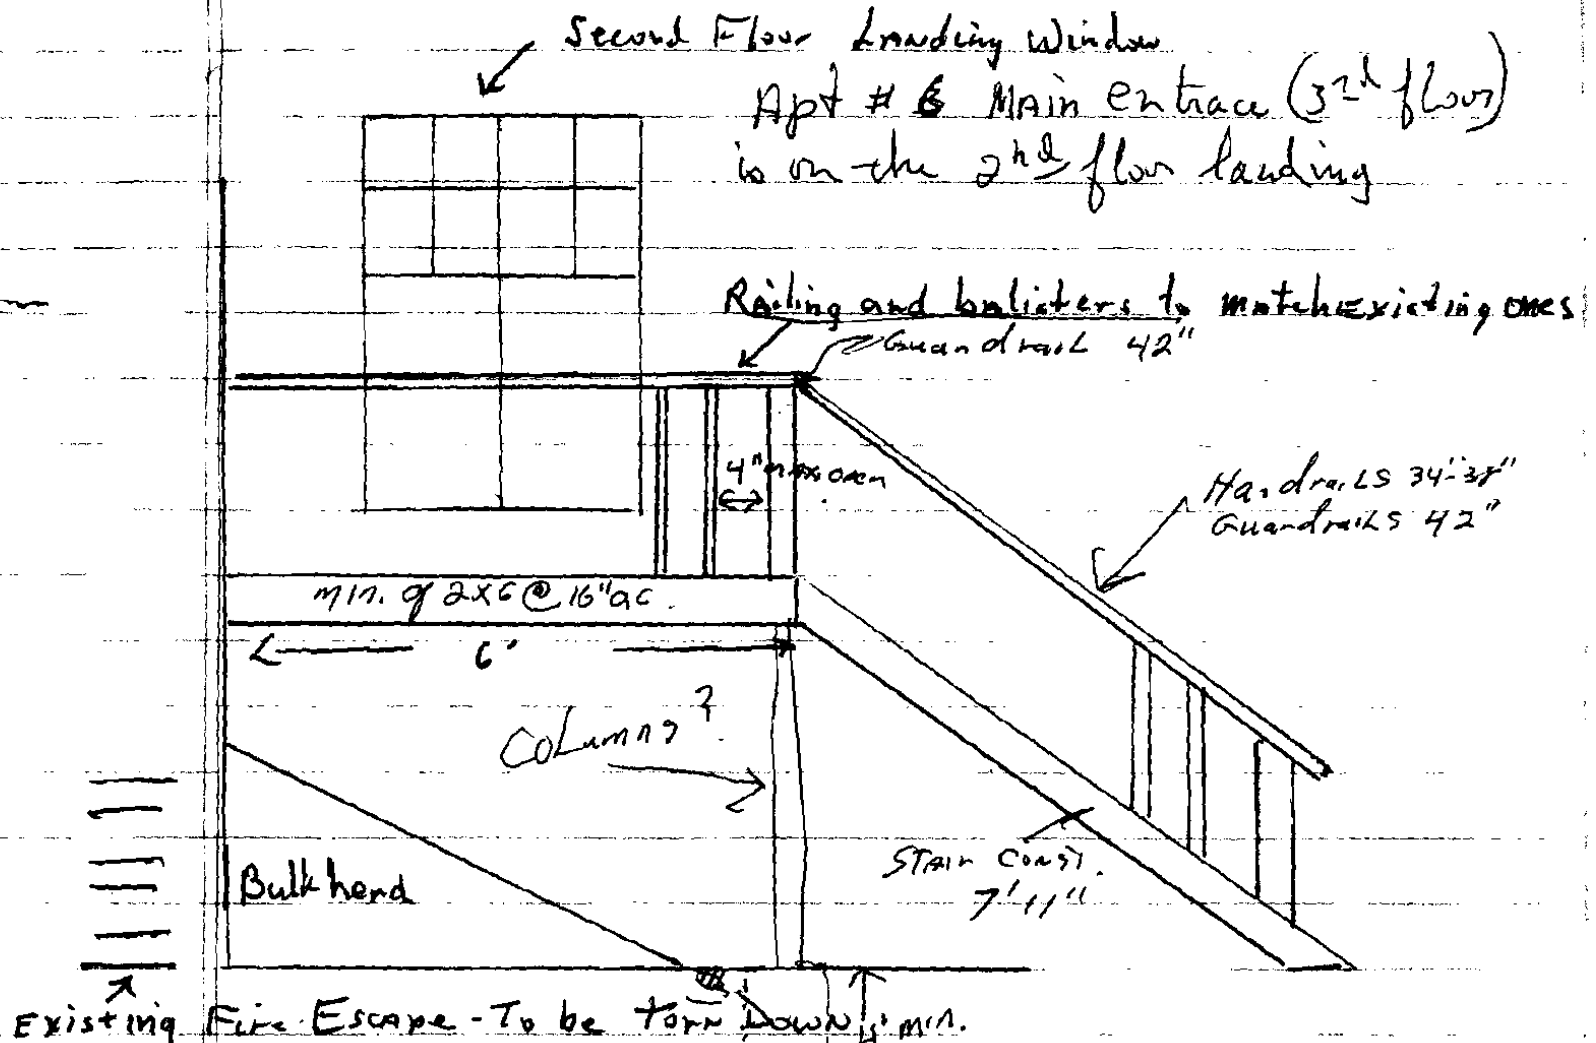 Second Floor Landing Window
Apt # 6 Main entrace (3rd floor)
is on the 2nd floor landing
Railing and balisters to match Existing ones
Guardrail 42"
4" max open
Handrails 34"-38"
Guardrails 42"
min. of 2x6 @ 16" oc.
6'
Columns?
Stair Const.
7' 11"
Bulkhead
Existing Fire Escape - To be Torn Down
min.